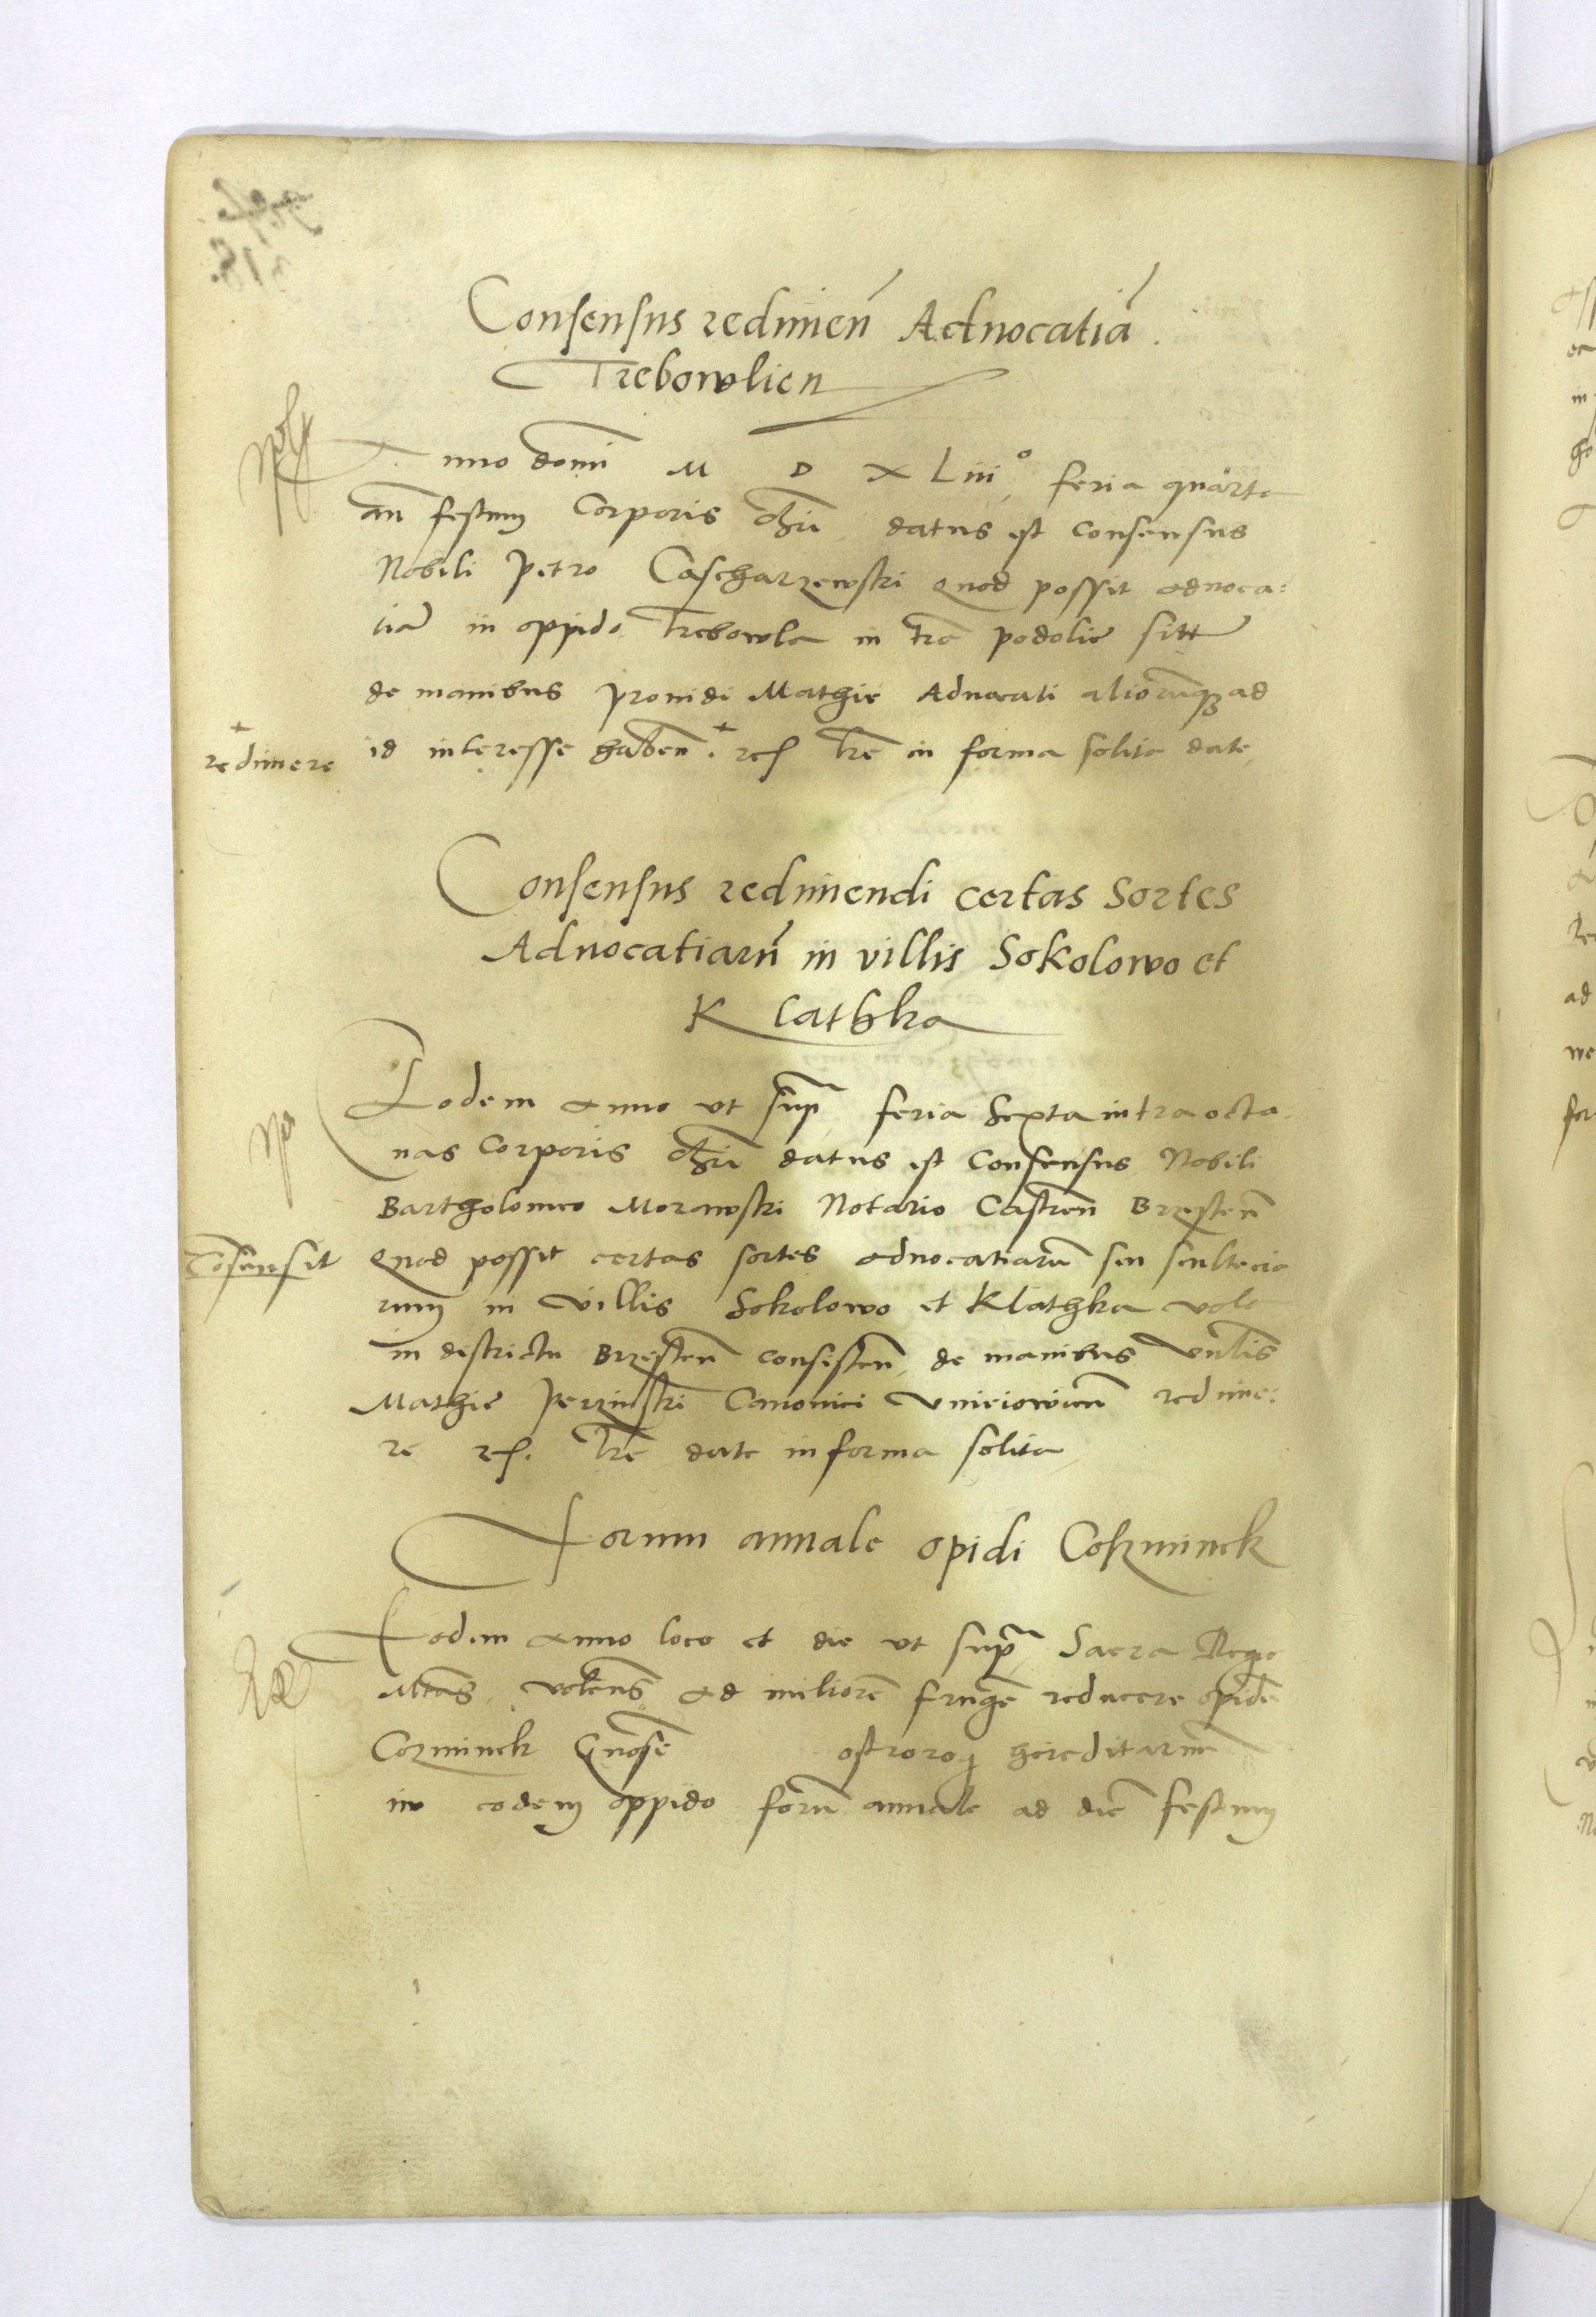 Consensus redimen Aduocatia
Trebowlien
Anno domi M D X Liii° feria quarta
an festum Corporis Chri datus est consensus
Nobili Petro Cascharzewski quod possit aduoca:
tia in oppido Trebowla in tra podolie sitt
de manibus prouidi Mathie Aduocati aliorumq ad
+
redimere
id interesse haben + rcf Lre in forma solita date
Consensus redimendi certas Sortes
Aduocatiaru in villis Sokolowo et
Klathka
Eodem anno vt sup feria Sexta intra octa
uas Corporis Chri datus est Consensus Nobili
Bartholomeo Morawski Notario Castren Brzesten
Consensit
quod possit certas sortes aduocatiaru seu scultecia
rum in villis Sokolowo et Klathka
in districtu Brzesten consisten de manibus
Mathie Canonici Vnieiowien redime:
re rcf. Lre date in forma solita
Forum annale opidi Cozminek
Eodem anno loco et die vt sup Sacra Regia
Mtas volens ad meliore fruge reducere opidu
Cozminek Gnose ostrorog hereditarium
in eodem oppido foru annale ad die festum